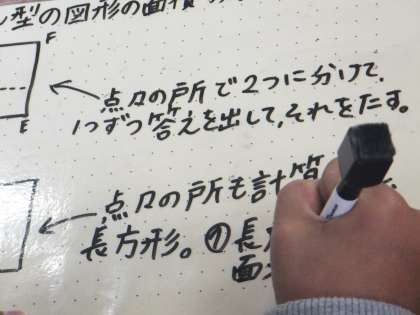 型の図形の面積
F
点々の戸所で2つに分けて、
1つずつ答えを出して、それをたす。
E
点々の戸所も計算
長方形。⑦長
面